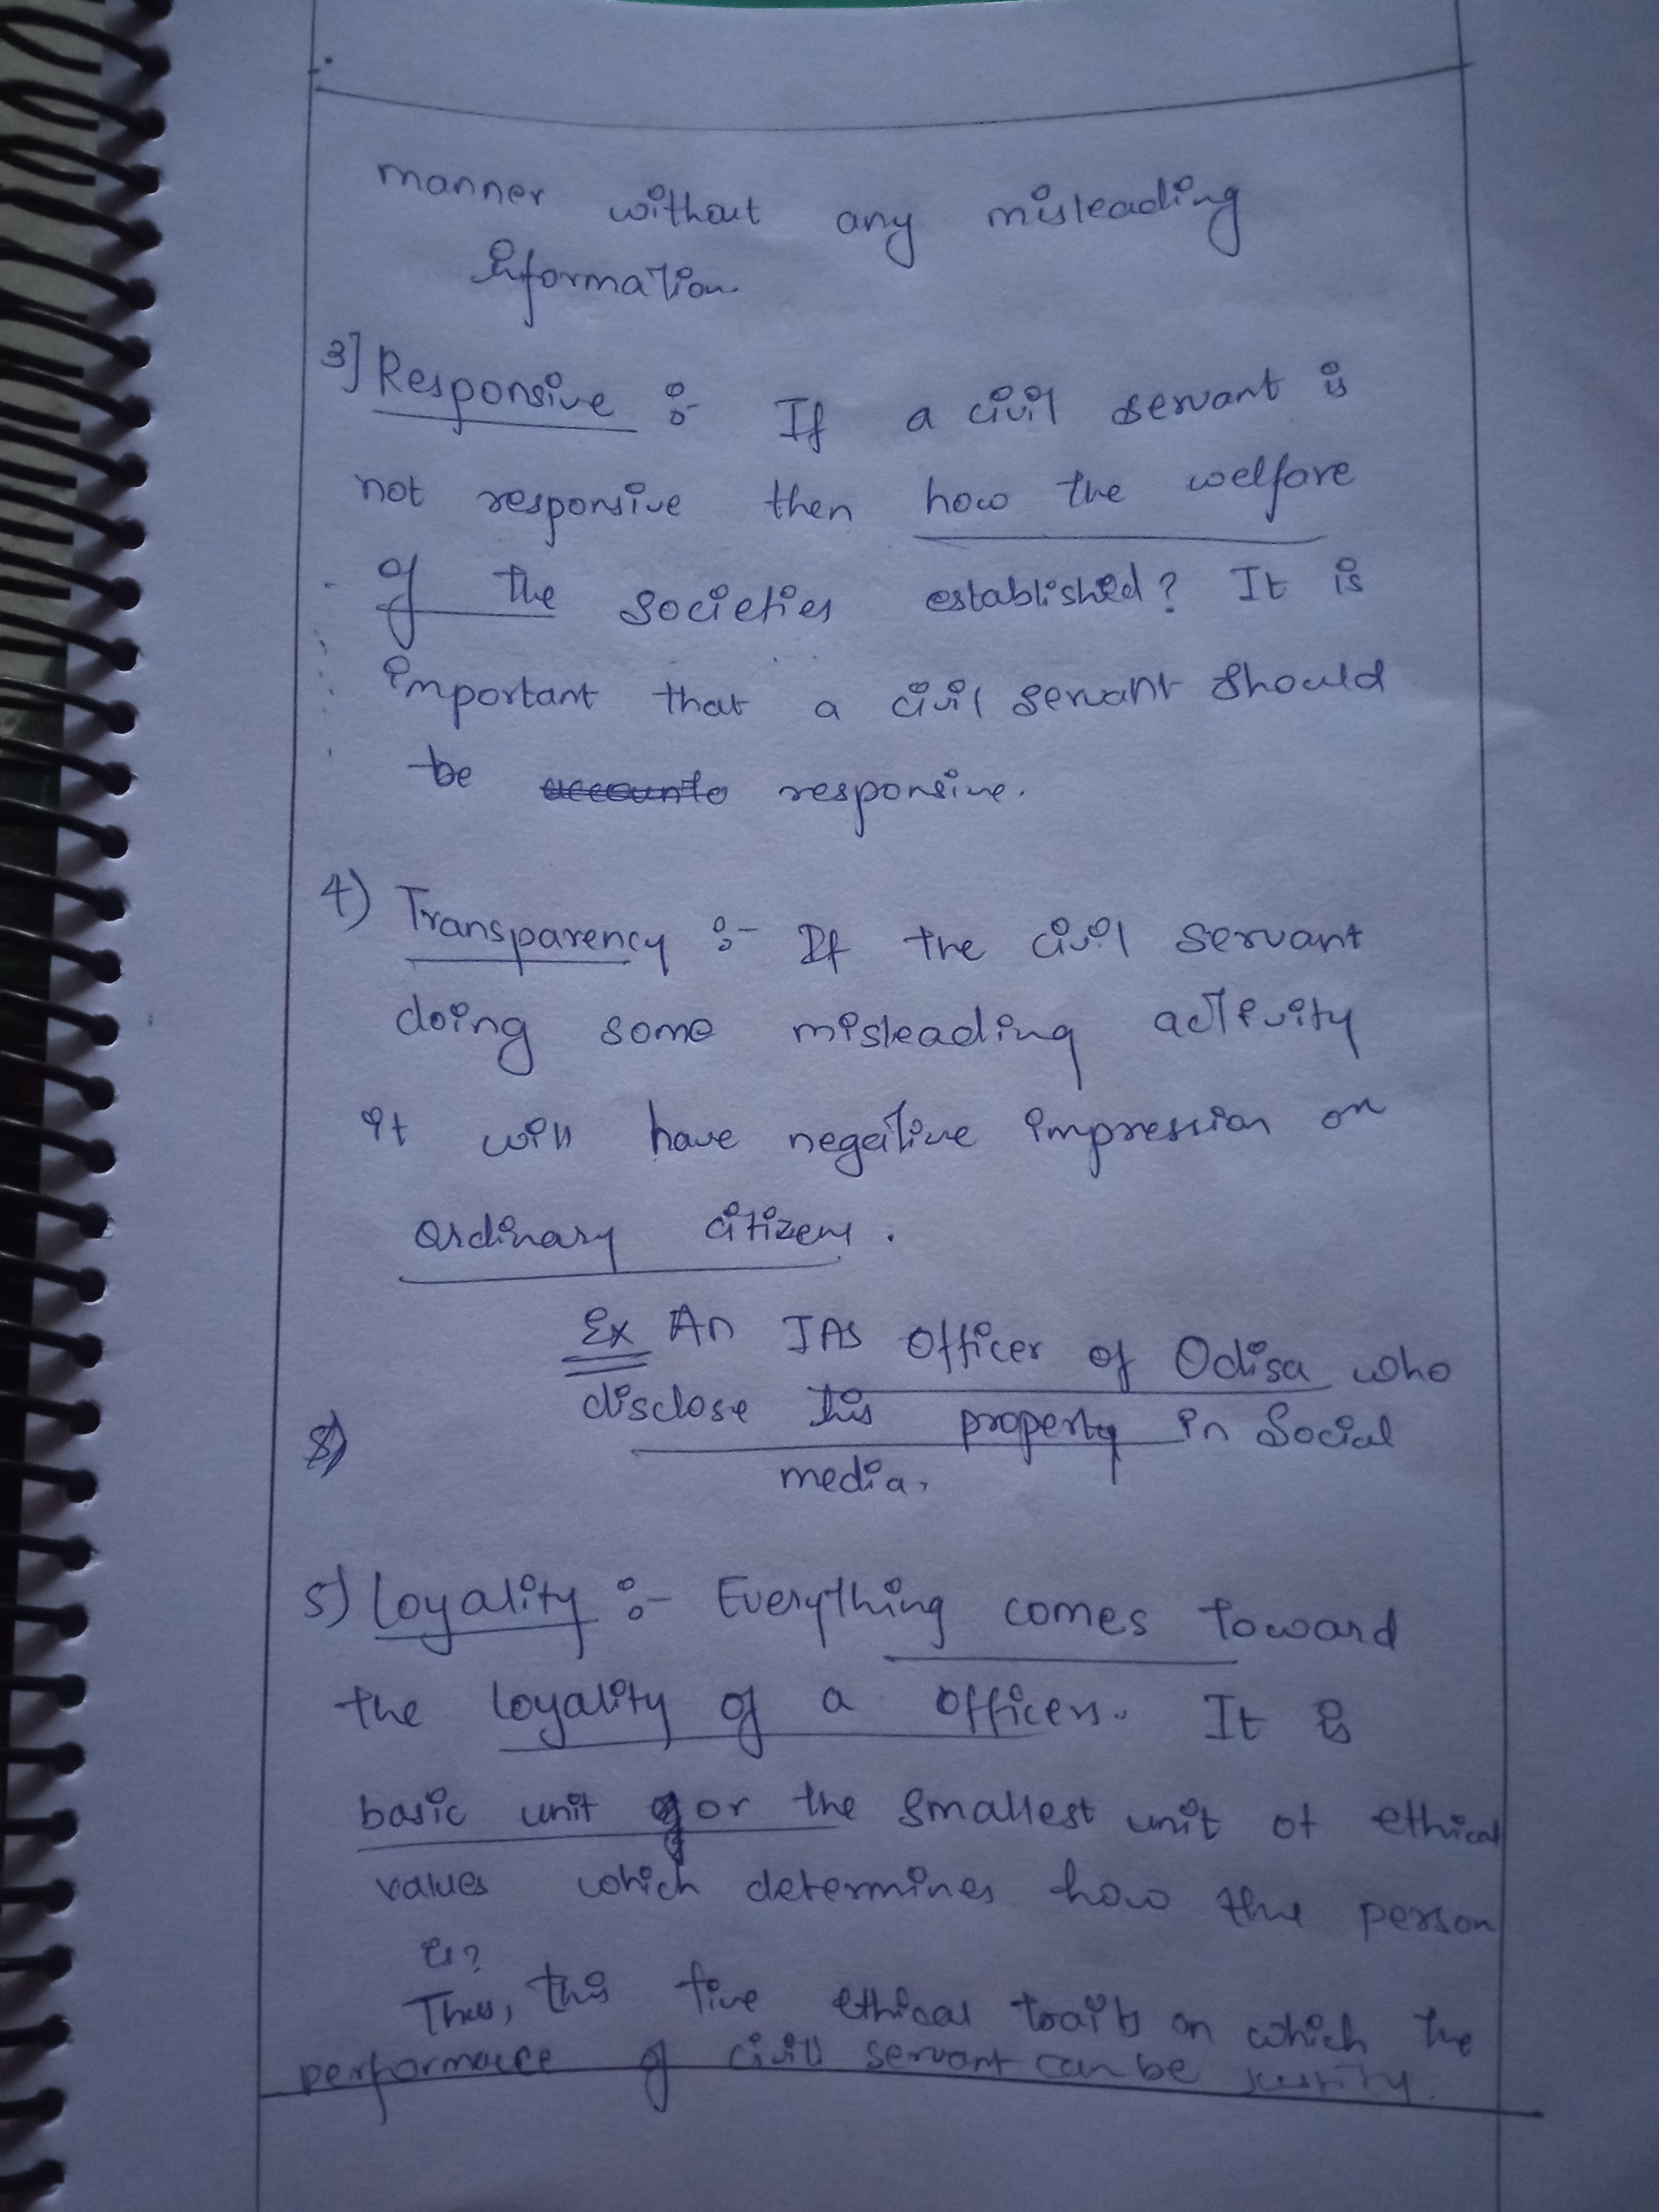 manner without any misleading
information
3] Responsive :- If a civil servant is
not responsive then how the welfare
of the societies established? It is
important that a civil servant should
be accounta responsive.
4) Transparency :- If the civil servant
doing some misleading activity
it will have negative impression on
ordinary citizens.
Ex An IAS officer of Odisa who
disclose his property in Social
media.
5) Loyality :- Everything comes toward
the loyality of a officers. It is
basic unit or the smallest unit of ethical
values which determines how the person
is?
Thus, this five ethical traits on which the
performance of civil servant can be justify.